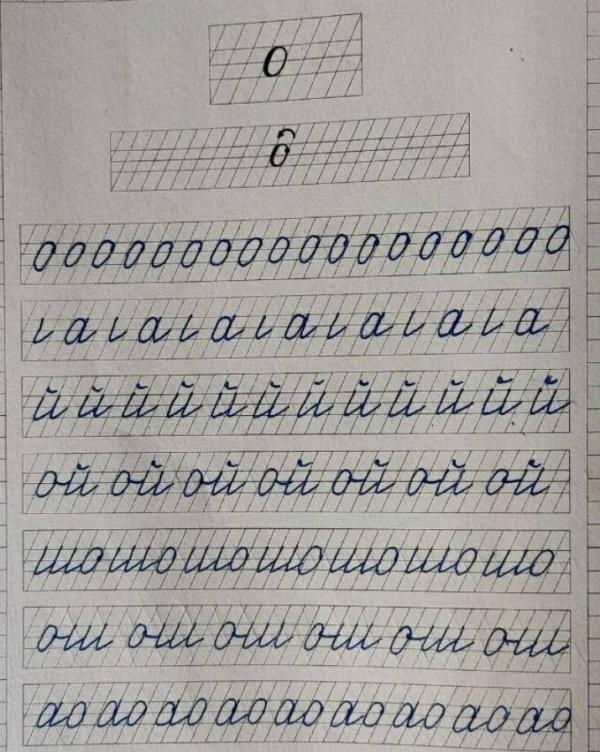 о
о
о о о о о о о о о о о о о о о о о о
ι а ι а ι а ι а ι а ι а ι а
й й й й й й й й й й й й
ой ой ой ой ой ой ой
шо шо шо шо шо шо шо
ош ош ош ош ош ош
ао ао ао ао ао ао ао ао ао